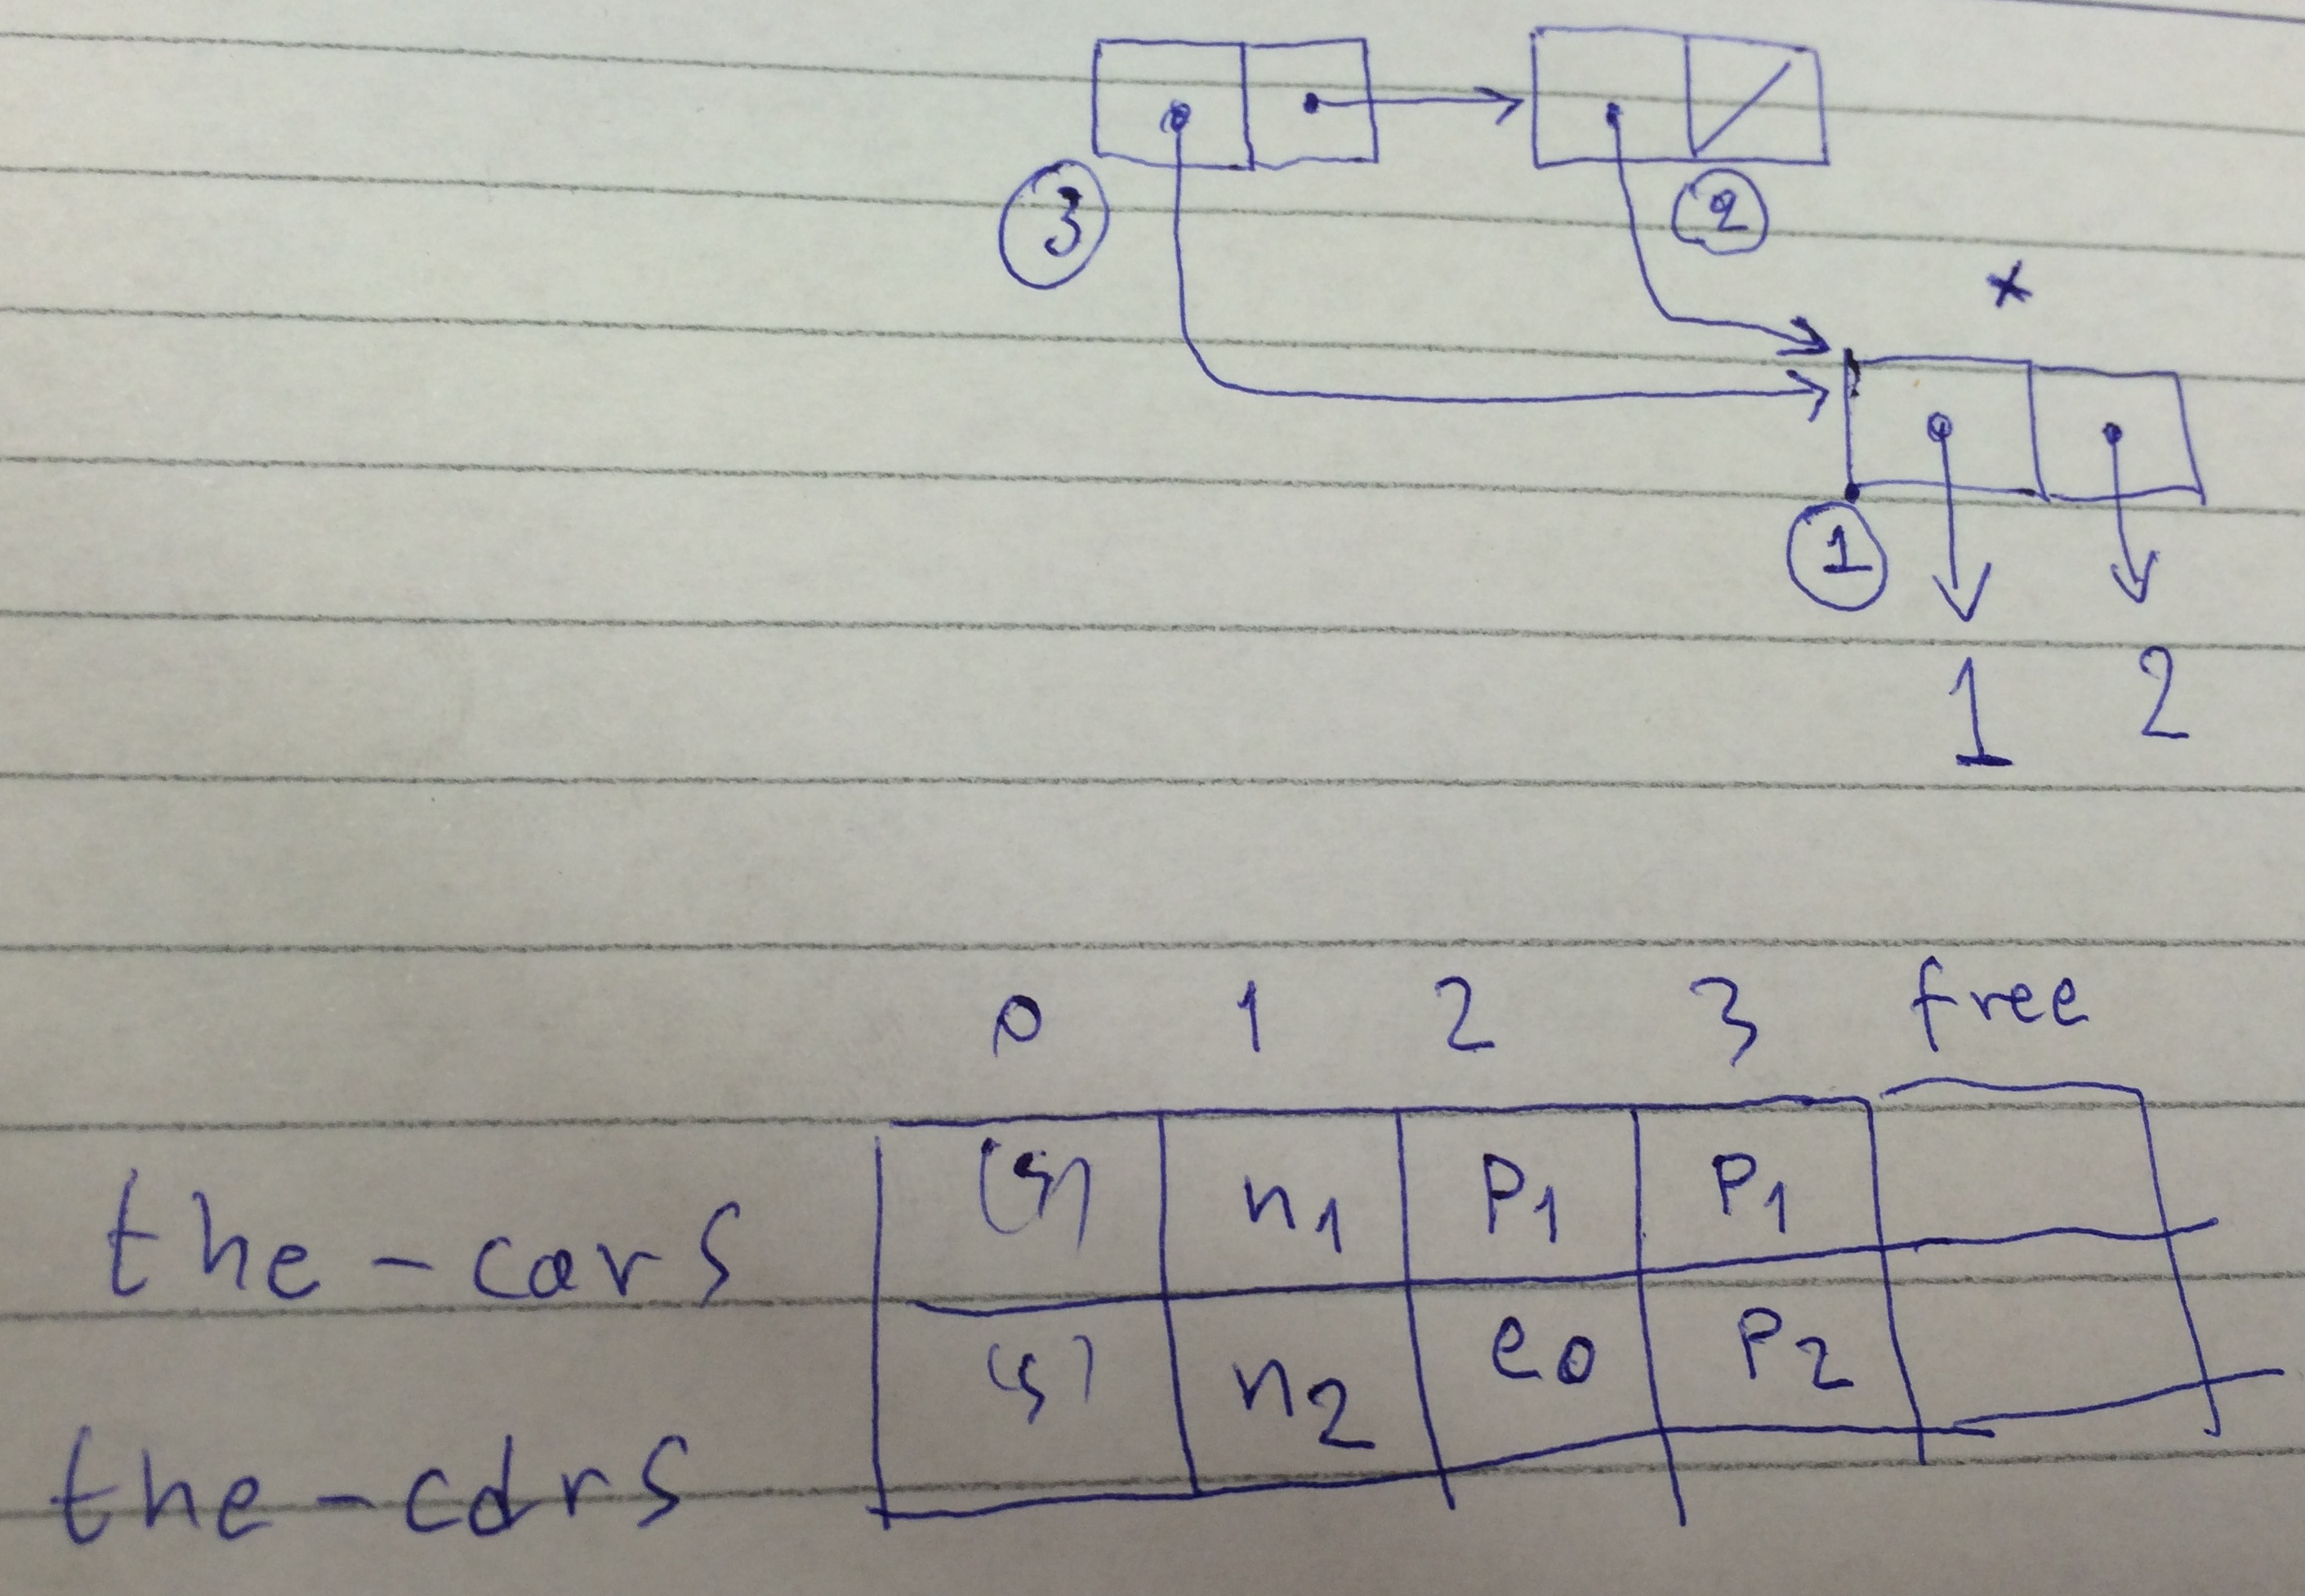 3 2
x
1
1 2
0 1 2 3 free
the-cars n1 P1 P1
the-cdrs n2 e0 P2